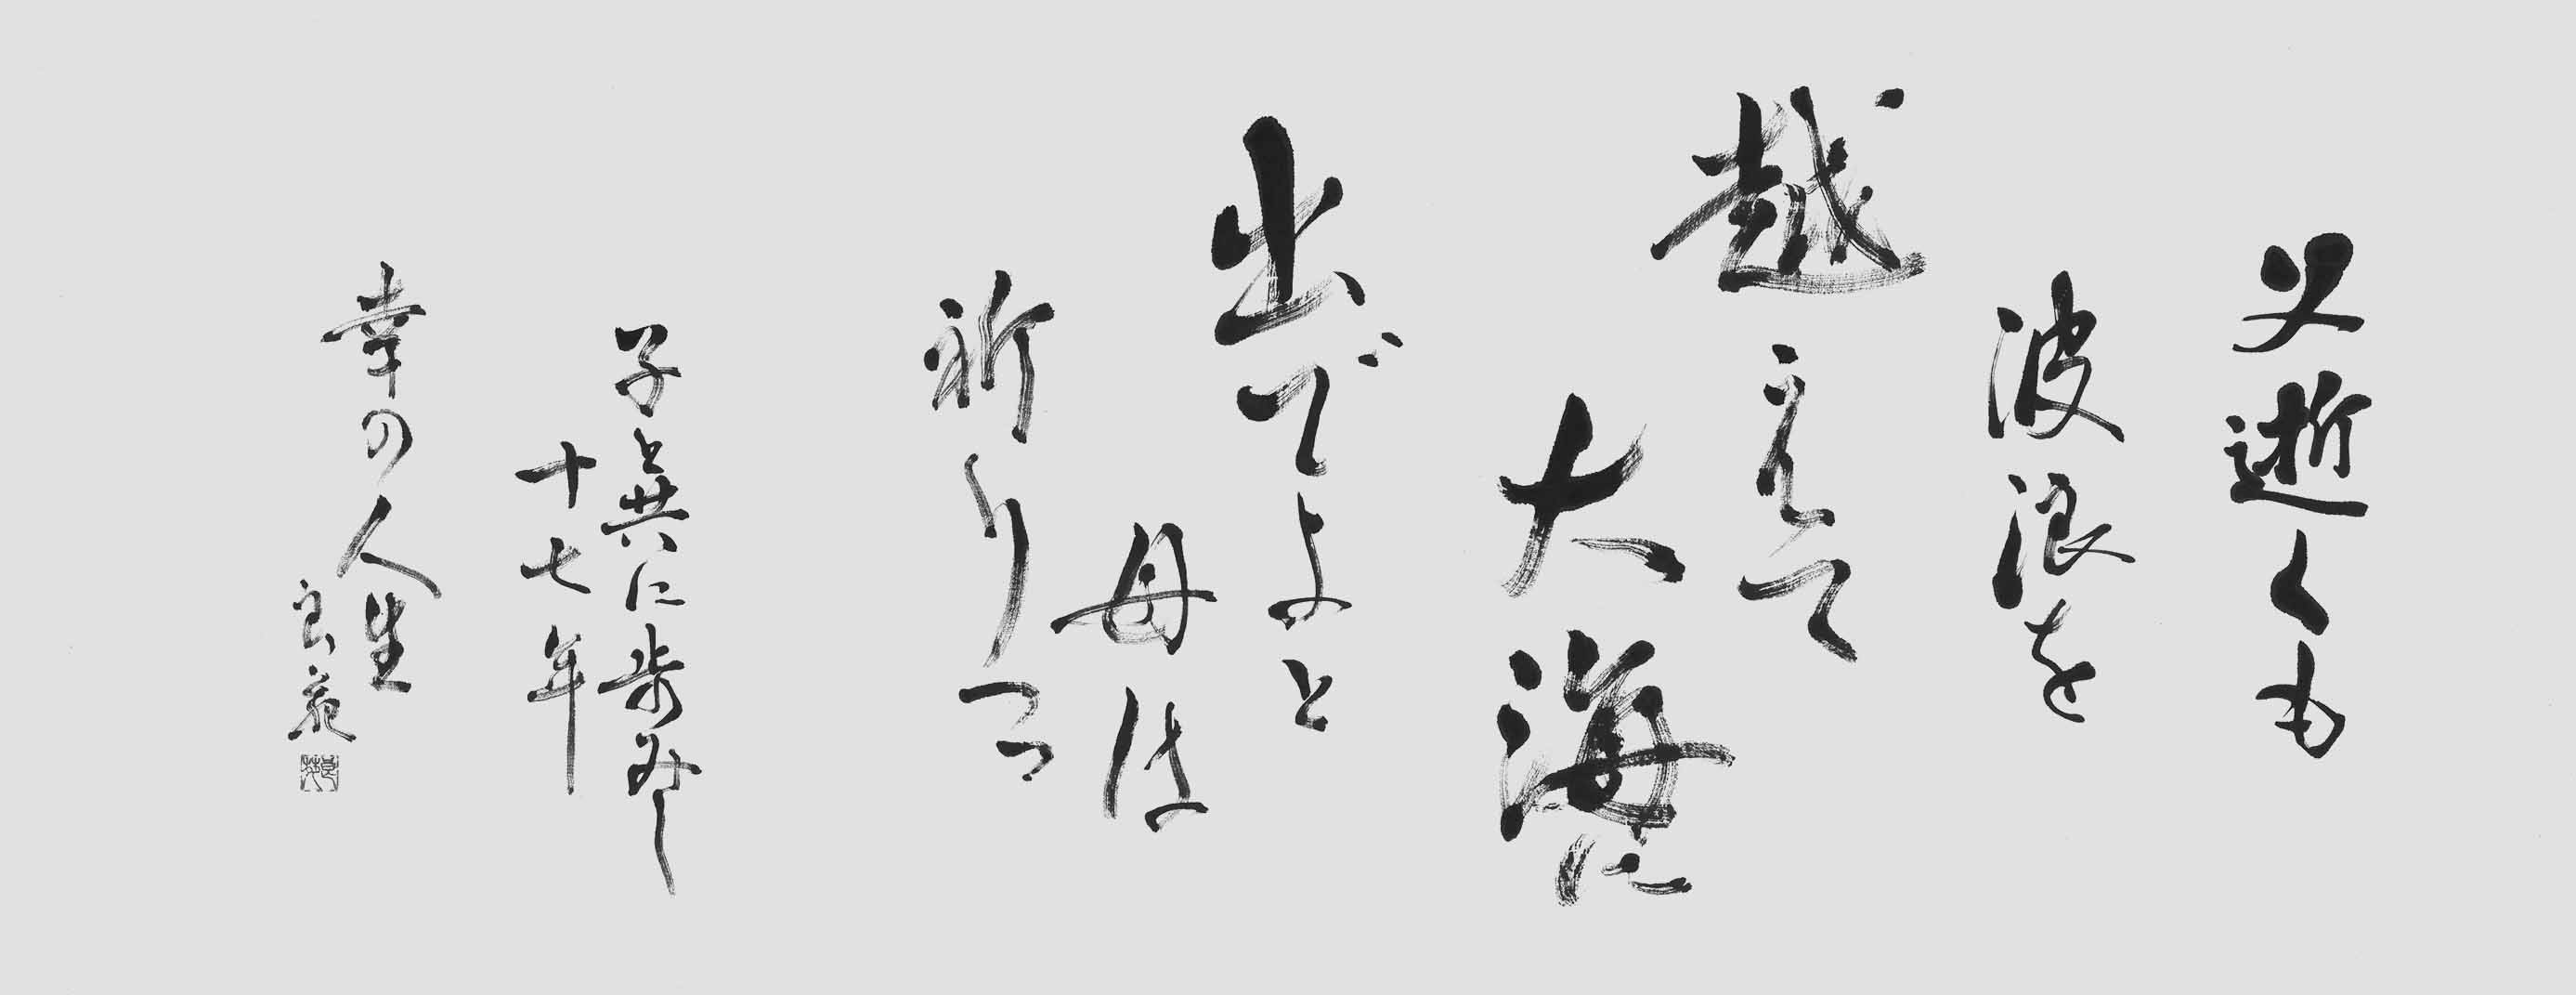 父逝くも
波浪を
越えて
大海に
出でよと
母は
祈りつつ
子と共に歩みし
十七年
幸の人生